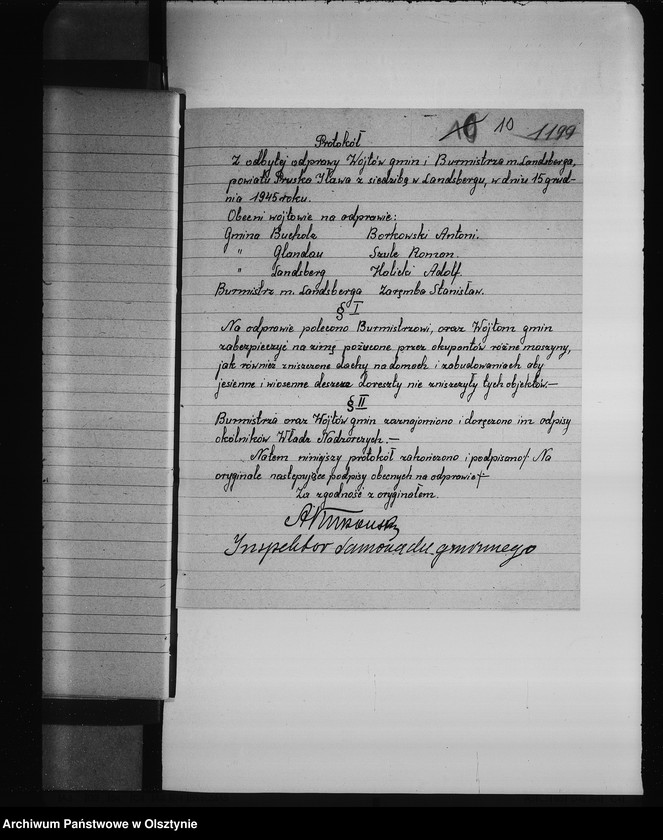 10 10 1199
Protokół
Z odbytej odprawy Wojtów gmin i Burmistrza m. Landsberga,
powiatu Prusko Iława z siedzibą w Landsbergu, w dniu 15 grud-
nia 1945 roku.
Obecni wójtowie na odprawie:
Gmina Bucholz Borkowski Antoni.
" Glandau Szulc Roman.
" Landsberg Halicki Adolf.
Burmistrz m. Landsberga Zaręmba Stanisław.
§ I
Na odprawie polecono Burmistrzowi, oraz Wojtom gmin
zabezpieczyć na zimę pożucone przez okupantów różne maszyny,
jak również zniszczone dachy na domach i zabudowaniach aby
jesienne i wiosenne deszcze doreszty nie zniszczyły tych objektów.—
§ II
Burmistrza oraz Wojtów gmin zaznajomiono i doręczono im odpisy
okólników Władz Nadzorczych.—
Natem niniejszy protokół zakończono i podpisano/ Na
oryginale następujące podpisy obecnych na odprawie/
Za zgodność z oryginałem.
Inspektor samorządu gminnego
Archiwum Państwowe w Olsztynie